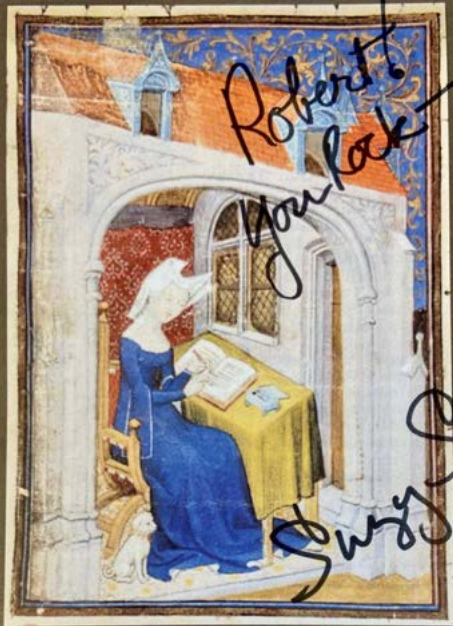 Robert!
You Rock—
Suzy